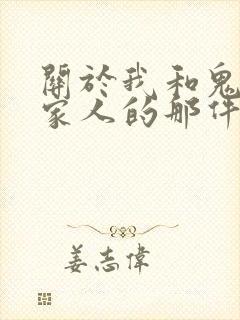 關於我和鬼
家人的那件
姜志偉